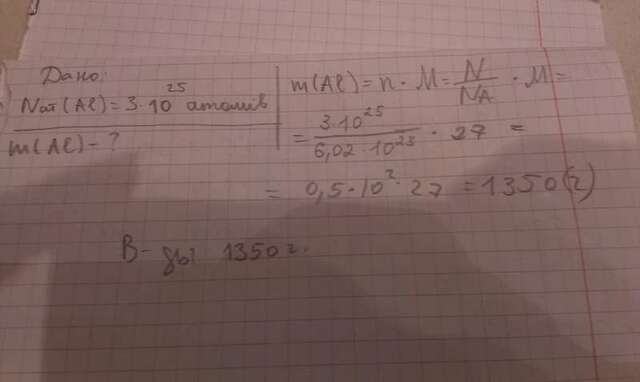 Дано:
Nат(Al) = 3·10²⁵ атомів
m(Al) - ?
m(Al) = n · M = N/NA · M =
= 3·10²⁵/6,02·10²³ · 27 =
= 0,5·10²·27 = 1350 (г)
В-дь: 1350 г.